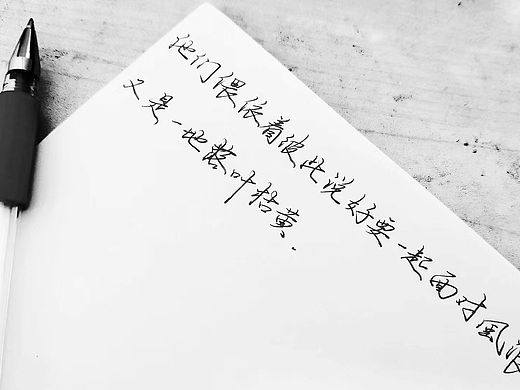 他们偎依着彼此说好要一起面对风浪
又是一地整叶枯黄.